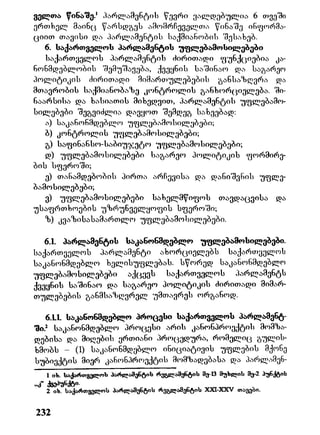 ველთა წინაშე.¹ პარლამენტის წევრი ვალდებულია 6 თვეში
ერთხელ მაინც წარსდგეს ამომრჩეველთა წინაშე ინფორმა-
ციით თავისი და პარლამენტის საქმიანობის შესახებ.
6. საქართველოს პარლამენტის უფლებამოსილებები
საქართველოს პარლამენტის ძირითადი ფუნქციებია კა-
ნონმდებლობის შემუშავება, ქვეყნის საშინაო და საგარეო
პოლიტიკის ძირითადი მიმართულებების განსაზღვრა და
მთავრობის საქმიანობაზე კონტროლის განხორციელება. ში-
ნაარსისა და ხასიათის მიხედვით, პარლამენტის უფლებამო-
სილებები შეგვიძლია დავყოთ შემდეგ სახეებად:
ა) საკანონმდებლო უფლებამოსილებები;
ბ) კონტროლის უფლებამოსილებები;
გ) საფინანსო-საბიუჯეტო უფლებამოსილებები;
დ) უფლებამოსილებები საგარეო პოლიტიკის ფორმირე-
ბის სფეროში;
ე) თანამდებობის პირთა არჩევისა და დანიშვნის უფლე-
ბამოსილებები;
ვ) უფლებამოსილებები სახელმწიფოს თავდაცვისა და
უსაფრთხოების უზრუნველყოფის სფეროში;
ზ) კვაზისასამართლო უფლებამოსილებები.
6.1. პარლამენტის საკანონმდებლო უფლებამოსილებები.
საქართველოს პარლამენტი ახორციელებს საქართველოს
საკანონმდებლო ხელისუფლებას. სწორედ საკანონმდებლო
უფლებამოსილებები აქცევს საქართველოს პარლამენტს
ქვეყნის საშინაო და საგარეო პოლიტიკის ძირითადი მიმარ-
თულებების განმსაზღვრელ უმთავრეს ორგანოდ.
6.1.1. საკანონმდებლო პროცესი საქართველოს პარლამენტ-
ში.² საკანონმდებლო პროცესი არის კანონპროექტის მომზა-
დებისა და მიღების ერთიანი პროცედურა, რომელიც გულის-
ხმობს – (1) საკანონმდებლო ინიციატივის უფლების მქონე
სუბიექტის მიერ კანონპროექტის მომზადებასა და პარლამენ-
1 იხ. საქართველოს პარლამენტის რეგლამენტის მე-13 მუხლის მე-2 პუნქტის
„კ“ ქვეპუნქტი.
2 იხ. საქართველოს პარლამენტის რეგლამენტის XXI-XXIV თავები.
232